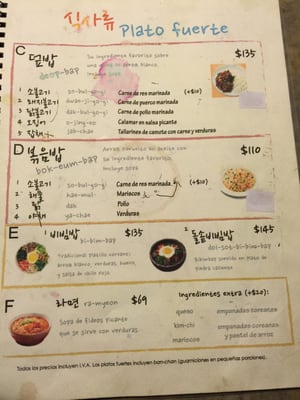 식사류 Plato fuerte
C 덮밥 Su ingrediente favorito sobre $135
deop-bap una cama de arroz blanco.
Incluye sopa
1 소불고기 so-bul-go-gi Carne de res marinada (+$10)
2 돼지불고기 dwae-ji-gogi Carne de puerco marinada
3 닭불고기 dak-bul-go-gi Carne de pollo marinada
4 오징어 o-jing-eo Calamar en salsa picante
5 잡채 jab-chae Tallarines de camote con carne y verduras
D 볶음밥 Arroz servido al aceite con $110
bok-eum-bap su ingrediente favorito.
Incluye sopa
1 소불고기 so-bul-go-gi Carne de res marinada (+$10)
2 해물 hae-mul Mariscos
3 닭 dak Pollo
4 야채 ya-chae Verduras
E 1 비빔밥 $135 2 돌솥비빔밥 $145
bi-bim-bap dol-sot-bi-bim-bap
Tradicional platillo coreano: Bibimbap servido en plato de
arroz blanco, verduras, huevo, piedra caliente
y salsa de chile rojo.
F 라면 ra-myeon $69 Ingredientes extra (+$20):
Sopa de fideos picante queso empanadas coreanas
que se sirve con verduras. kim-chi empanadas coreanas
mariscos y pastel de arroz
Todos los precios incluyen I.V.A. Los platos fuertes incluyen ban-chan (guarniciones en pequeñas porciones).